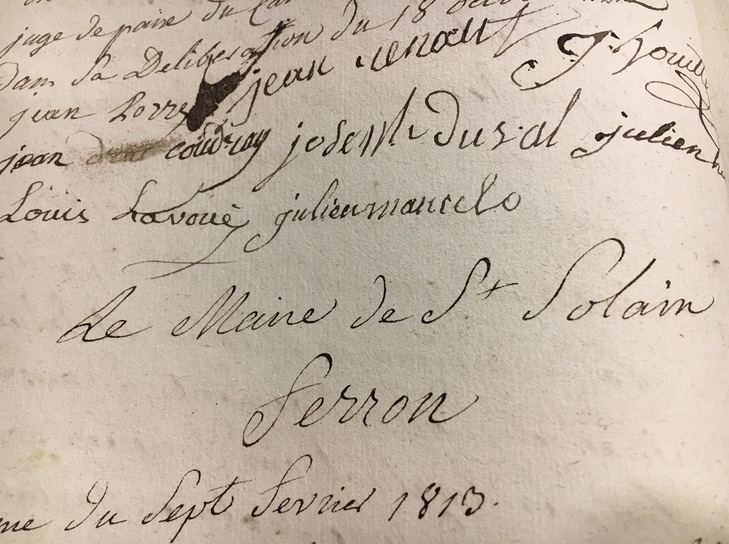 juge de paix du Can
Dans Sa Deliberation du 18
jean Lorre jean renaut
jean coudray joseph Duval julien
Louis Lavoué julien mancelo
Le Maire de St Solain
ferron
me du Sept fevrier 1813.